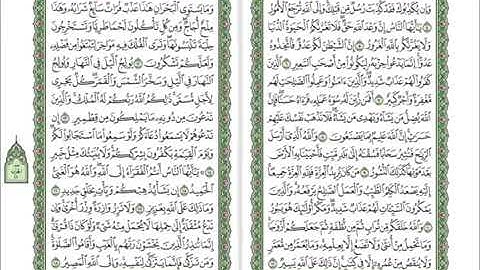 وَإِن يُكَذِّبُوكَ فَقَدْ كُذِّبَتْ رُسُلٌ مِّن قَبْلِكَ وَإِلَى ٱللَّهِ تُرْجَعُ ٱلْأُمُورُ
۝٤ يَٰٓأَيُّهَا ٱلنَّاسُ إِنَّ وَعْدَ ٱللَّهِ حَقٌّ فَلَا تَغُرَّنَّكُمُ ٱلْحَيَوٰةُ ٱلدُّنْيَا
وَلَا يَغُرَّنَّكُم بِٱللَّهِ ٱلْغَرُورُ ۝٥ إِنَّ ٱلشَّيْطَٰنَ لَكُمْ عَدُوٌّ فَٱتَّخِذُوهُ
عَدُوًّا إِنَّمَا يَدْعُوا۟ حِزْبَهُۥ لِيَكُونُوا۟ مِنْ أَصْحَٰبِ ٱلسَّعِيرِ ۝٦ ٱلَّذِينَ
كَفَرُوا۟ لَهُمْ عَذَابٌ شَدِيدٌ وَٱلَّذِينَ ءَامَنُوا۟ وَعَمِلُوا۟ ٱلصَّٰلِحَٰتِ لَهُم
مَّغْفِرَةٌ وَأَجْرٌ كَبِيرٌ ۝٧ أَفَمَن زُيِّنَ لَهُۥ سُوٓءُ عَمَلِهِۦ فَرَءَاهُ حَسَنًا فَإِنَّ
ٱللَّهَ يُضِلُّ مَن يَشَآءُ وَيَهْدِى مَن يَشَآءُ فَلَا تَذْهَبْ نَفْسُكَ عَلَيْهِمْ
حَسَرَٰتٍ إِنَّ ٱللَّهَ عَلِيمٌۢ بِمَا يَصْنَعُونَ ۝٨ وَٱللَّهُ ٱلَّذِىٓ أَرْسَلَ
ٱلرِّيَٰحَ فَتُثِيرُ سَحَابًا فَسُقْنَٰهُ إِلَىٰ بَلَدٍ مَّيِّتٍ فَأَحْيَيْنَا بِهِ ٱلْأَرْضَ
بَعْدَ مَوْتِهَا كَذَٰلِكَ ٱلنُّشُورُ ۝٩ مَن كَانَ يُرِيدُ ٱلْعِزَّةَ فَلِلَّهِ ٱلْعِزَّةُ
جَمِيعًا إِلَيْهِ يَصْعَدُ ٱلْكَلِمُ ٱلطَّيِّبُ وَٱلْعَمَلُ ٱلصَّٰلِحُ يَرْفَعُهُۥ وَٱلَّذِينَ
يَمْكُرُونَ ٱلسَّيِّـَٔاتِ لَهُمْ عَذَابٌ شَدِيدٌ وَمَكْرُ أُو۟لَٰٓئِكَ هُوَ يَبُورُ
۝١٠ وَٱللَّهُ خَلَقَكُم مِّن تُرَابٍ ثُمَّ مِن نُّطْفَةٍ ثُمَّ جَعَلَكُمْ أَزْوَٰجًا
وَمَا تَحْمِلُ مِنْ أُنثَىٰ وَلَا تَضَعُ إِلَّا بِعِلْمِهِۦ وَمَا يُعَمَّرُ مِن مُّعَمَّرٍ
وَلَا يُنقَصُ مِنْ عُمُرِهِۦٓ إِلَّا فِى كِتَٰبٍ إِنَّ ذَٰلِكَ عَلَى ٱللَّهِ يَسِيرٌ ۝١١
وَمَا يَسْتَوِى ٱلْبَحْرَانِ هَٰذَا عَذْبٌ فُرَاتٌ سَآئِغٌ شَرَابُهُۥ وَهَٰذَا
مِلْحٌ أُجَاجٌ وَمِن كُلٍّ تَأْكُلُونَ لَحْمًا طَرِيًّا وَتَسْتَخْرِجُونَ
حِلْيَةً تَلْبَسُونَهَا وَتَرَى ٱلْفُلْكَ فِيهِ مَوَاخِرَ لِتَبْتَغُوا۟ مِن فَضْلِهِۦ
وَلَعَلَّكُمْ تَشْكُرُونَ ۝١٢ يُولِجُ ٱلَّيْلَ فِى ٱلنَّهَارِ وَيُولِجُ
ٱلنَّهَارَ فِى ٱلَّيْلِ وَسَخَّرَ ٱلشَّمْسَ وَٱلْقَمَرَ كُلٌّ يَجْرِى
لِأَجَلٍ مُّسَمًّى ذَٰلِكُمُ ٱللَّهُ رَبُّكُمْ لَهُ ٱلْمُلْكُ وَٱلَّذِينَ
تَدْعُونَ مِن دُونِهِۦ مَا يَمْلِكُونَ مِن قِطْمِيرٍ ۝١٣ إِن
تَدْعُوهُمْ لَا يَسْمَعُوا۟ دُعَآءَكُمْ وَلَوْ سَمِعُوا۟ مَا ٱسْتَجَابُوا۟ لَكُمْ
وَيَوْمَ ٱلْقِيَٰمَةِ يَكْفُرُونَ بِشِرْكِكُمْ وَلَا يُنَبِّئُكَ مِثْلُ خَبِيرٍ
۝١٤ يَٰٓأَيُّهَا ٱلنَّاسُ أَنتُمُ ٱلْفُقَرَآءُ إِلَى ٱللَّهِ وَٱللَّهُ هُوَ ٱلْغَنِىُّ
ٱلْحَمِيدُ ۝١٥ إِن يَشَأْ يُذْهِبْكُمْ وَيَأْتِ بِخَلْقٍ جَدِيدٍ ۝١٦
وَمَا ذَٰلِكَ عَلَى ٱللَّهِ بِعَزِيزٍ ۝١٧ وَلَا تَزِرُ وَازِرَةٌ وِزْرَ أُخْرَىٰ وَإِن
تَدْعُ مُثْقَلَةٌ إِلَىٰ حِمْلِهَا لَا يُحْمَلْ مِنْهُ شَىْءٌ وَلَوْ كَانَ ذَا قُرْبَىٰٓ
إِنَّمَا تُنذِرُ ٱلَّذِينَ يَخْشَوْنَ رَبَّهُم بِٱلْغَيْبِ وَأَقَامُوا۟ ٱلصَّلَوٰةَ
وَمَن تَزَكَّىٰ فَإِنَّمَا يَتَزَكَّىٰ لِنَفْسِهِۦ وَإِلَى ٱللَّهِ ٱلْمَصِيرُ ۝١٨